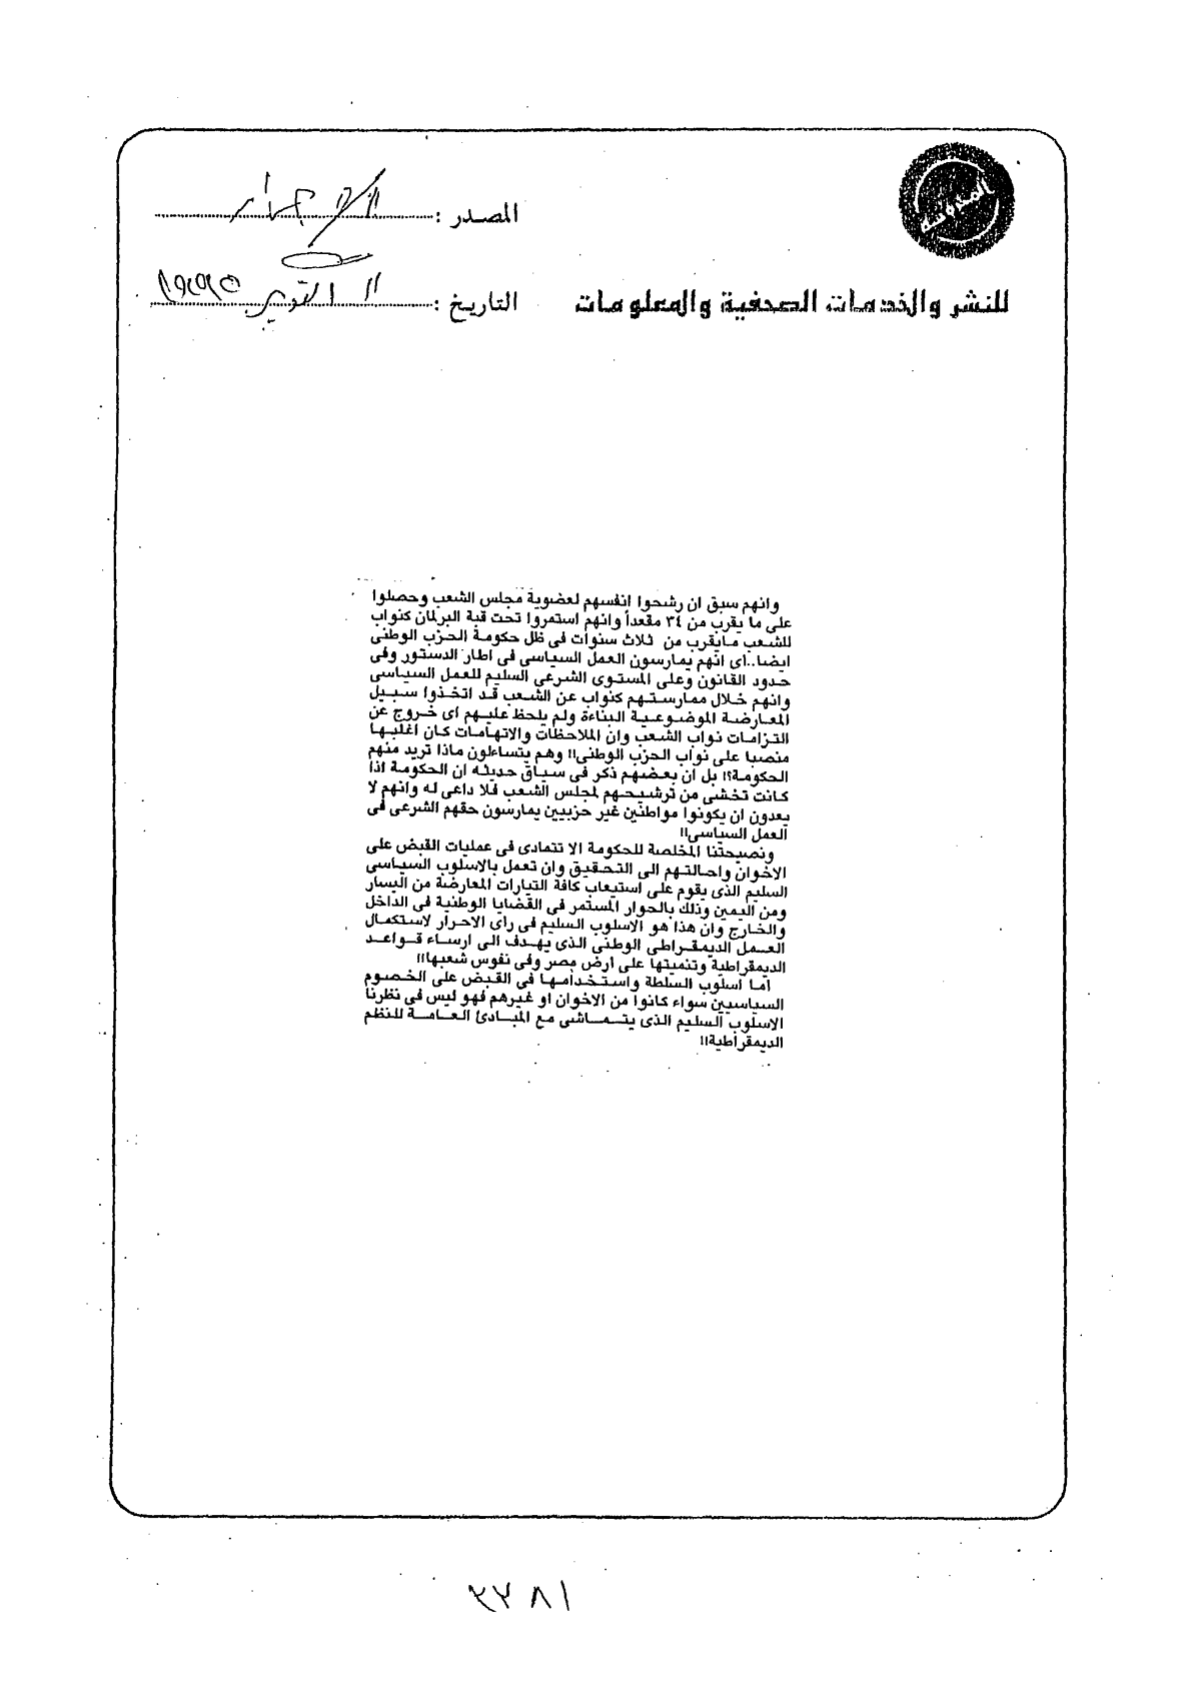 المصدر : الأحرار
للنشر والخدمات الصحفية والمعلومات
التاريخ : ١١ اكتوبر ١٩٩٥
وانهم سبق ان رشحوا انفسهم لعضوية مجلس الشعب وحصلوا
على ما يقرب من ٣٤ مقعداً وانهم استمروا تحت قبة البرلمان كنواب
للشعب مايقرب من ثلاث سنوات فى ظل حكومة الحزب الوطنى
ايضا..اى انهم يمارسون العمل السياسى فى اطار الدستور وفى
حدود القانون وعلى المستوى الشرعى السليم للعمل السياسى
وانهم خلال ممارستهم كنواب عن الشعب قد اتخذوا سبيل
المعارضة الموضوعية البناءة ولم يلحظ عليهم اى خروج عن
التزامات نواب الشعب وان الملاحظات والاتهامات كان اغلبها
منصبا على نواب الحزب الوطنى!! وهم يتساءلون ماذا تريد منهم
الحكومة؟! بل ان بعضهم ذكر فى سياق حديثه ان الحكومة اذا
كانت تخشى من ترشيحهم لمجلس الشعب فلا داعى له وانهم لا
يعدون ان يكونوا مواطنين غير حزبيين يمارسون حقهم الشرعى فى
العمل السياسى!!
ونصيحتنا المخلصة للحكومة الا تتمادى فى عمليات القبض على
الاخوان واحالتهم الى التحقيق وان تعمل بالاسلوب السياسى
السليم الذى يقوم على استيعاب كافة التيارات المعارضة من اليسار
ومن اليمين وذلك بالحوار المستمر فى القضايا الوطنية فى الداخل
والخارج وان هذا هو الاسلوب السليم فى راى الاحرار لاستكمال
العمل الديمقراطى الوطنى الذى يهدف الى ارساء قواعد
الديمقراطية وتنميتها على ارض مصر وفى نفوس شعبها!!
اما اسلوب السلطة واستخدامها فى القبض على الخصوم
السياسيين سواء كانوا من الاخوان او غيرهم فهو ليس فى نظرنا
الاسلوب السليم الذى يتماشى مع المبادئ العامة للنظم
الديمقراطية!!